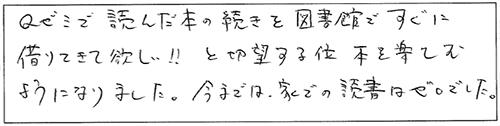 Qゼミで読んだ本の続きを図書館ですぐに
借りてきて欲しい!! と切望する位 本を楽しむ
ようになりました。今までは、家での読書はゼロでした。